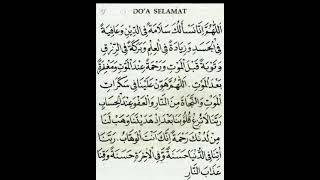 DO'A SELAMAT
اَللّٰهُمَّ اِنَّا نَسْأَلُكَ سَلَامَةً فِى الدِّيْنِ وَعَافِيَةً
فِى الْجَسَدِ وَزِيَادَةً فِى الْعِلْمِ وَبَرَكَةً فِى الرِّزْقِ
وَتَوْبَةً قَبْلَ الْمَوْتِ وَرَحْمَةً عِنْدَ الْمَوْتِ وَمَغْفِرَةً
بَعْدَ الْمَوْتِ. اَللّٰهُمَّ هَوِّنْ عَلَيْنَا فِى سَكَرَاتِ
الْمَوْتِ وَالنَّجَاةَ مِنَ النَّارِ وَالْعَفْوَ عِنْدَ الْحِسَابِ
رَبَّنَا لَا تُزِغْ قُلُوْبَنَا بَعْدَ اِذْ هَدَيْتَنَا وَهَبْ لَنَا
مِنْ لَدُنْكَ رَحْمَةً اِنَّكَ اَنْتَ الْوَهَّابُ. رَبَّنَا
اٰتِنَا فِى الدُّنْيَا حَسَنَةً وَّفِى الْاٰخِرَةِ حَسَنَةً وَّقِنَا
عَذَابَ النَّارِ